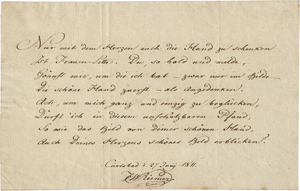 Nur mit dem Herzen auch die Hand zu schenken
Ist Frauen-Sitte. Du, so hold und milde,
Gönnst mir, um die ich bat – zwar nur im Bilde –
Die schöne Hand zuerst – als Angedenken.
Ach, um mich ganz und einzig zu beglücken,
Dürft ich in diesem unschätzbaren Pfand,
So wie das Bild von deiner schönen Hand,
Auch Deines Herzens schönes Bild erblicken!
Carlsbad d 27 Juny 1811.
Riemer